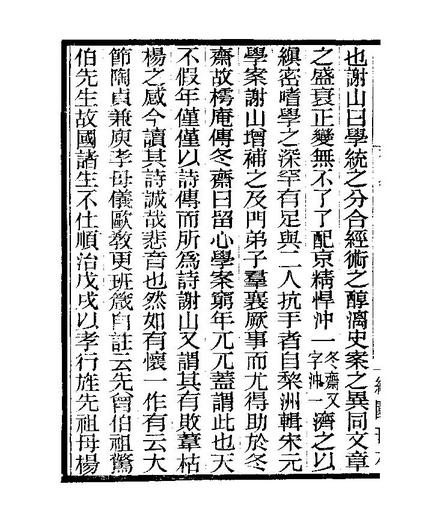 也謝山曰學統之分合經術之醇漓史案之異同文章
之盛衰正變無不了了配京精悍沖一冬齋又字沖一濟之以
縝密嗜學之深罕有足與二人抗手者自黎洲輯宋元
學案謝山增補之及門弟子羣襄厥事而尤得助於冬
齋故樗庵傳冬齋曰留心學案窮年兀兀蓋謂此也天
不假年僅僅以詩傳而所爲詩謝山又謂其有敗葦枯
楊之感今讀其詩誠哉悲音也然如有懷一作有云大
節陶貞兼庾孝母儀歐敎更班箴自註云先曾伯祖驚
伯先生故國諸生不仕順治戊戌以孝行旌先祖母楊